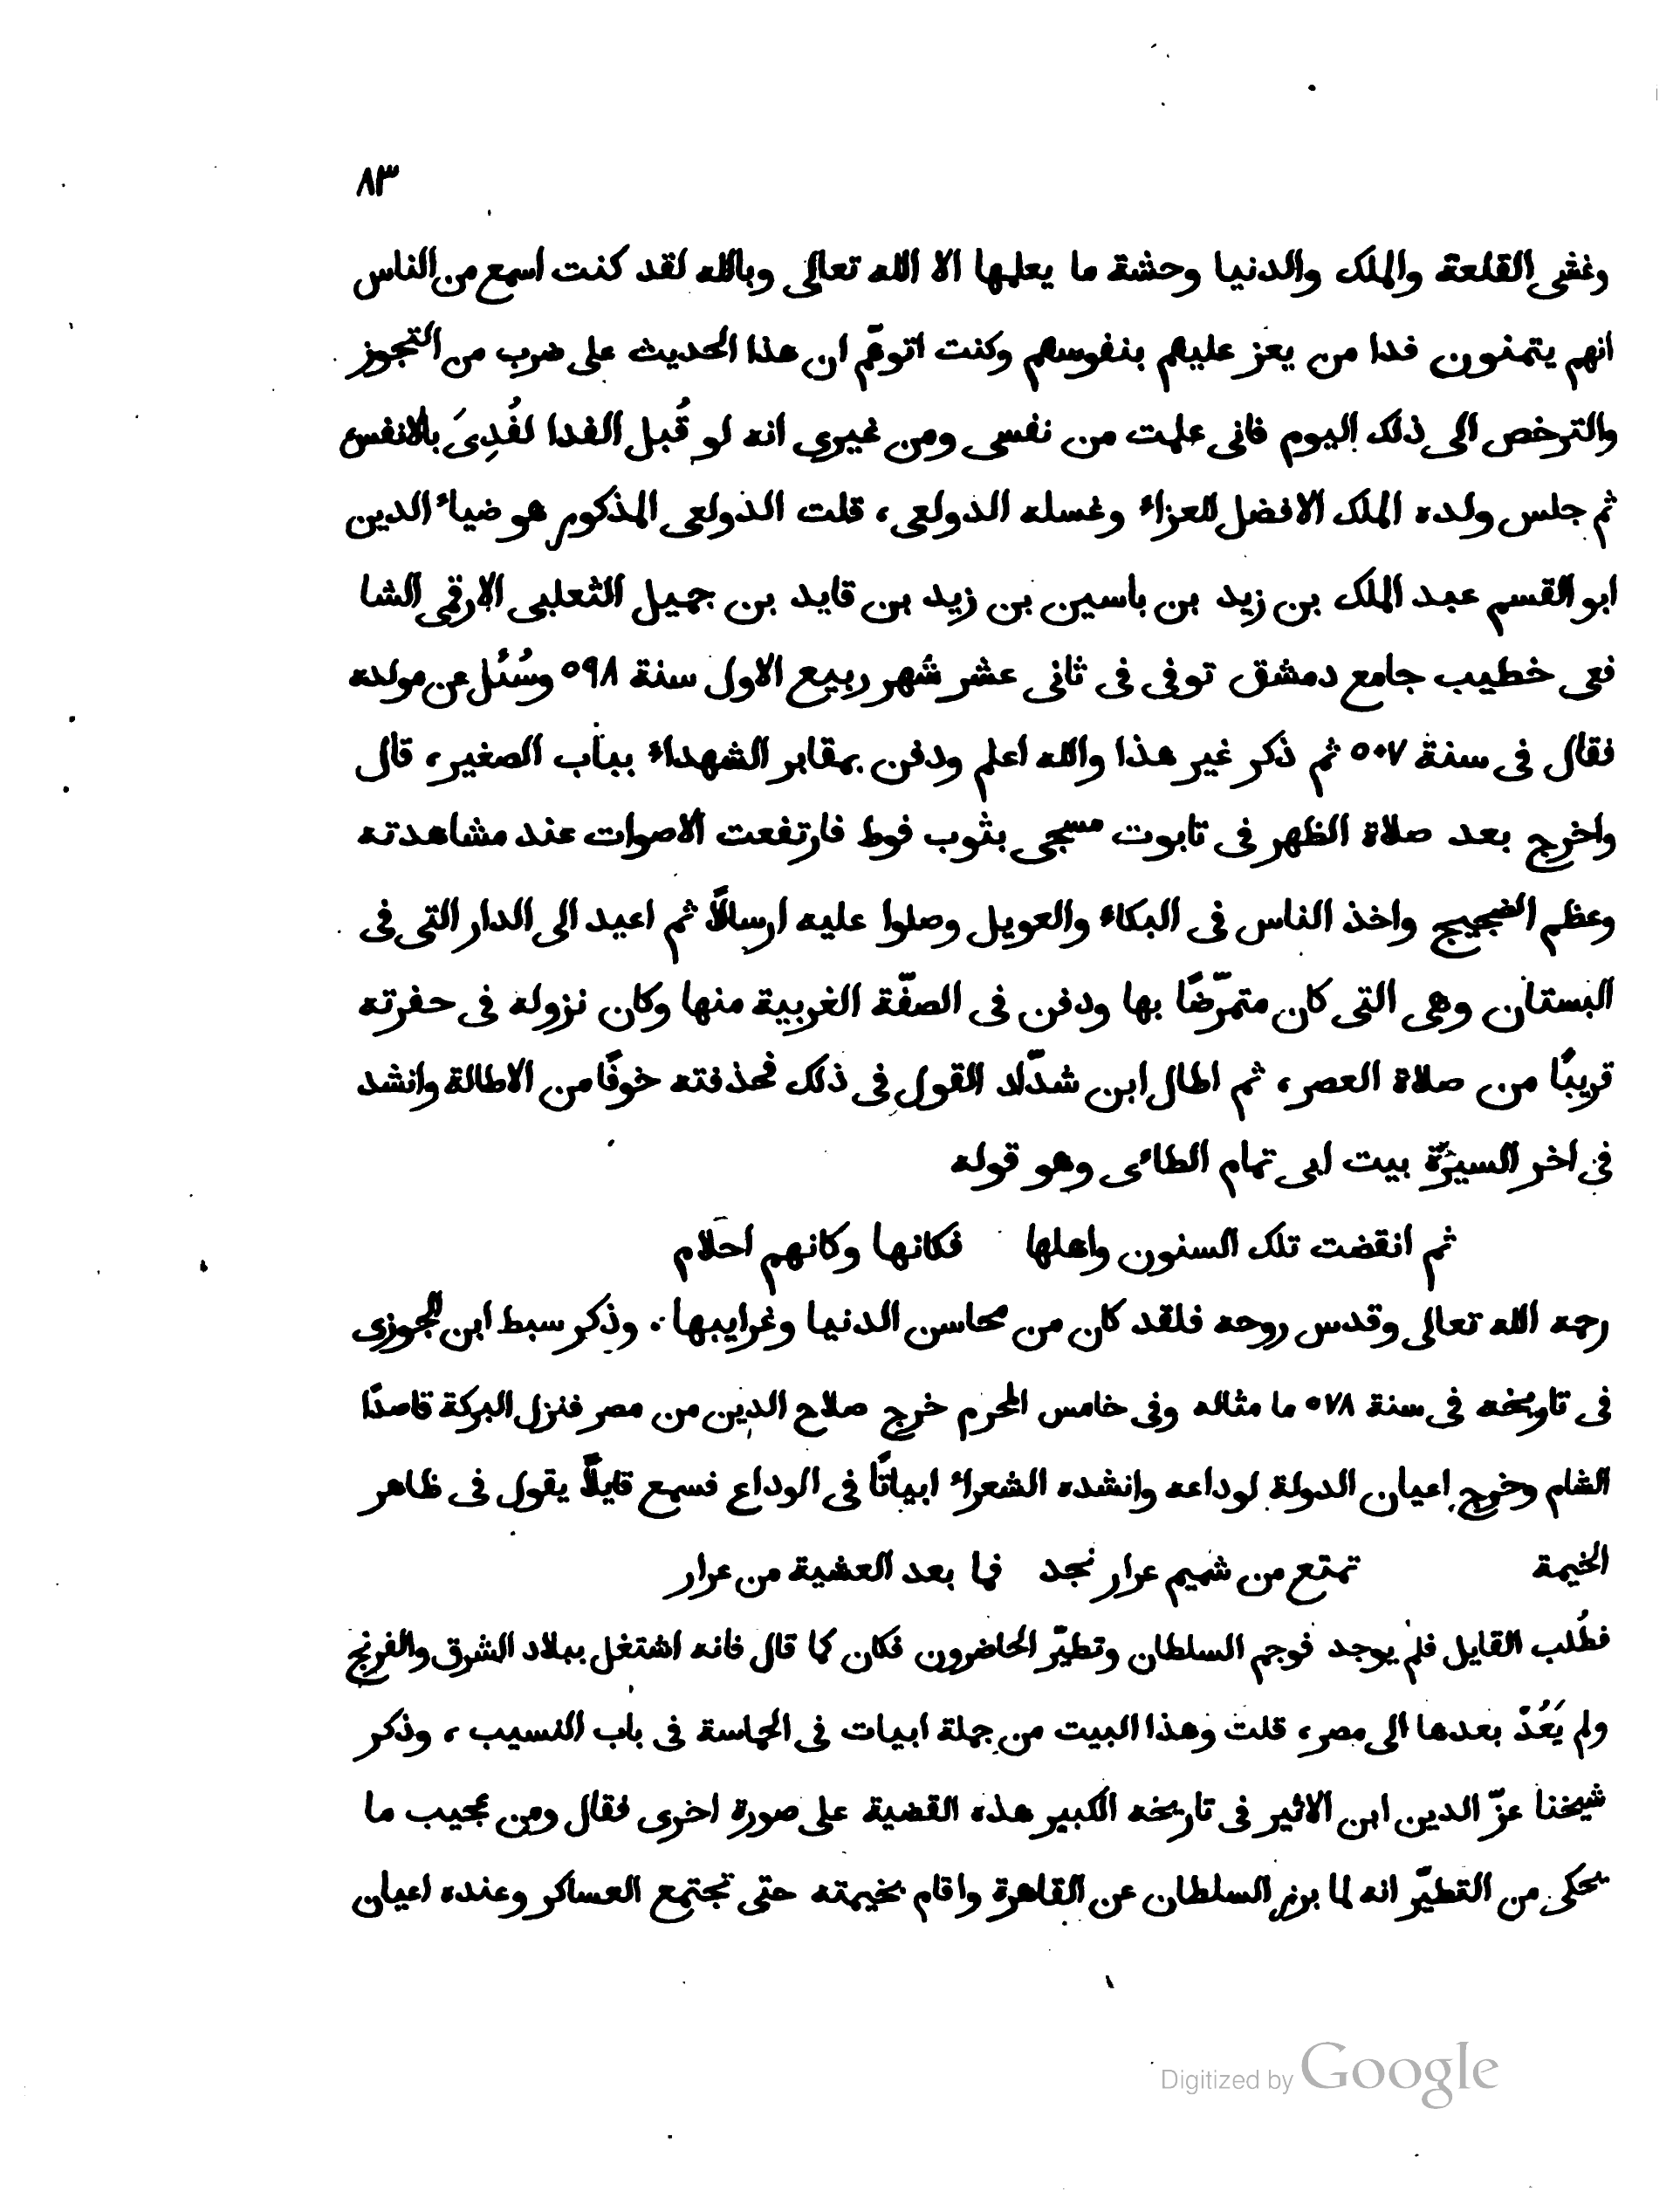 ٨٣
وغشى القلعة والملك والدنيا وحشة ما يعلمها الا الله تعالى وبالله لقد كنت اسمع من الناس
انهم يتمنون فدا من يعز عليهم بنفوسهم وكنت اتوهّم ان هذا الحديث على ضرب من التجوز
والترخص الى ذلك اليوم فانى علمت من نفسى ومن غيرى انه لو قُبل الفدا لفُدِىَ بالانفس
ثم جلس ولده الملك الافضل للعزاء وغسله الدولعى، قلت الدولعى المذكور هو ضياء الدين
ابو القسم عبد الملك بن زيد بن ياسين بن زيد بن قايد بن جميل الثعلبى الارقمى الشا
فعى خطيب جامع دمشق توفى فى ثانى عشر شهر ربيع الاول سنة ٥٩٨ وسُئل عن مولده
فقال فى سنة ٥٠٧ ثم ذكر غير هذا والله اعلم ودفن بمقابر الشهداء بباب الصغير، قال
واخرج بعد صلاة الظهر فى تابوت مسجى بثوب فوط فارتفعت الاصوات عند مشاهدته
وعظم الضجيج واخذ الناس فى البكاء والعويل وصلوا عليه ارسالًا ثم اعيد الى الدار التى فى
البستان وهى التى كان متمرّضًا بها ودفن فى الصفّة الغربية منها وكان نزوله فى حفرته
قريبًا من صلاة العصر، ثم اطال ابن شدّاد القول فى ذلك فحذفته خوفًا من الاطالة وانشد
فى اخر السيرة بيت ابى تمام الطاءى وهو قوله
ثم انقضت تلك السنون واهلها فكانها وكانهم احلام
رحمه الله تعالى وقدس روحه فلقد كان من محاسن الدنيا وغرايبها ٠ وذكر سبط ابن الجوزى
فى تاريخه فى سنة ٥٧٨ ما مثاله وفى خامس المحرم خرج صلاح الدين من مصر فنزل البركة قاصدًا
الشام وخرج اعيان الدولة لوداعه وانشده الشعراء ابياتًا فى الوداع فسمع قايلًا يقول فى ظاهر
الخيمة تمتع من شميم عرار نجد فما بعد العشية من عرار
فطُلب القايل فلم يوجد فوجم السلطان وتطيّر الحاضرون فكان كما قال فانه اشتغل ببلاد الشرق والفرنج
ولم يَعُدْ بعدها الى مصر، قلت وهذا البيت من جملة ابيات فى الحماسة فى باب النسيب، وذكر
شيخنا عزّ الدين ابن الاثير فى تاريخه الكبير هذه القضية على صورة اخرى فقال ومن عجيب ما
يحكى من التطيّر انه لما برز السلطان عن القاهرة واقام بخيمته حتى تجتمع العساكر وعنده اعيان
Digitized by Google